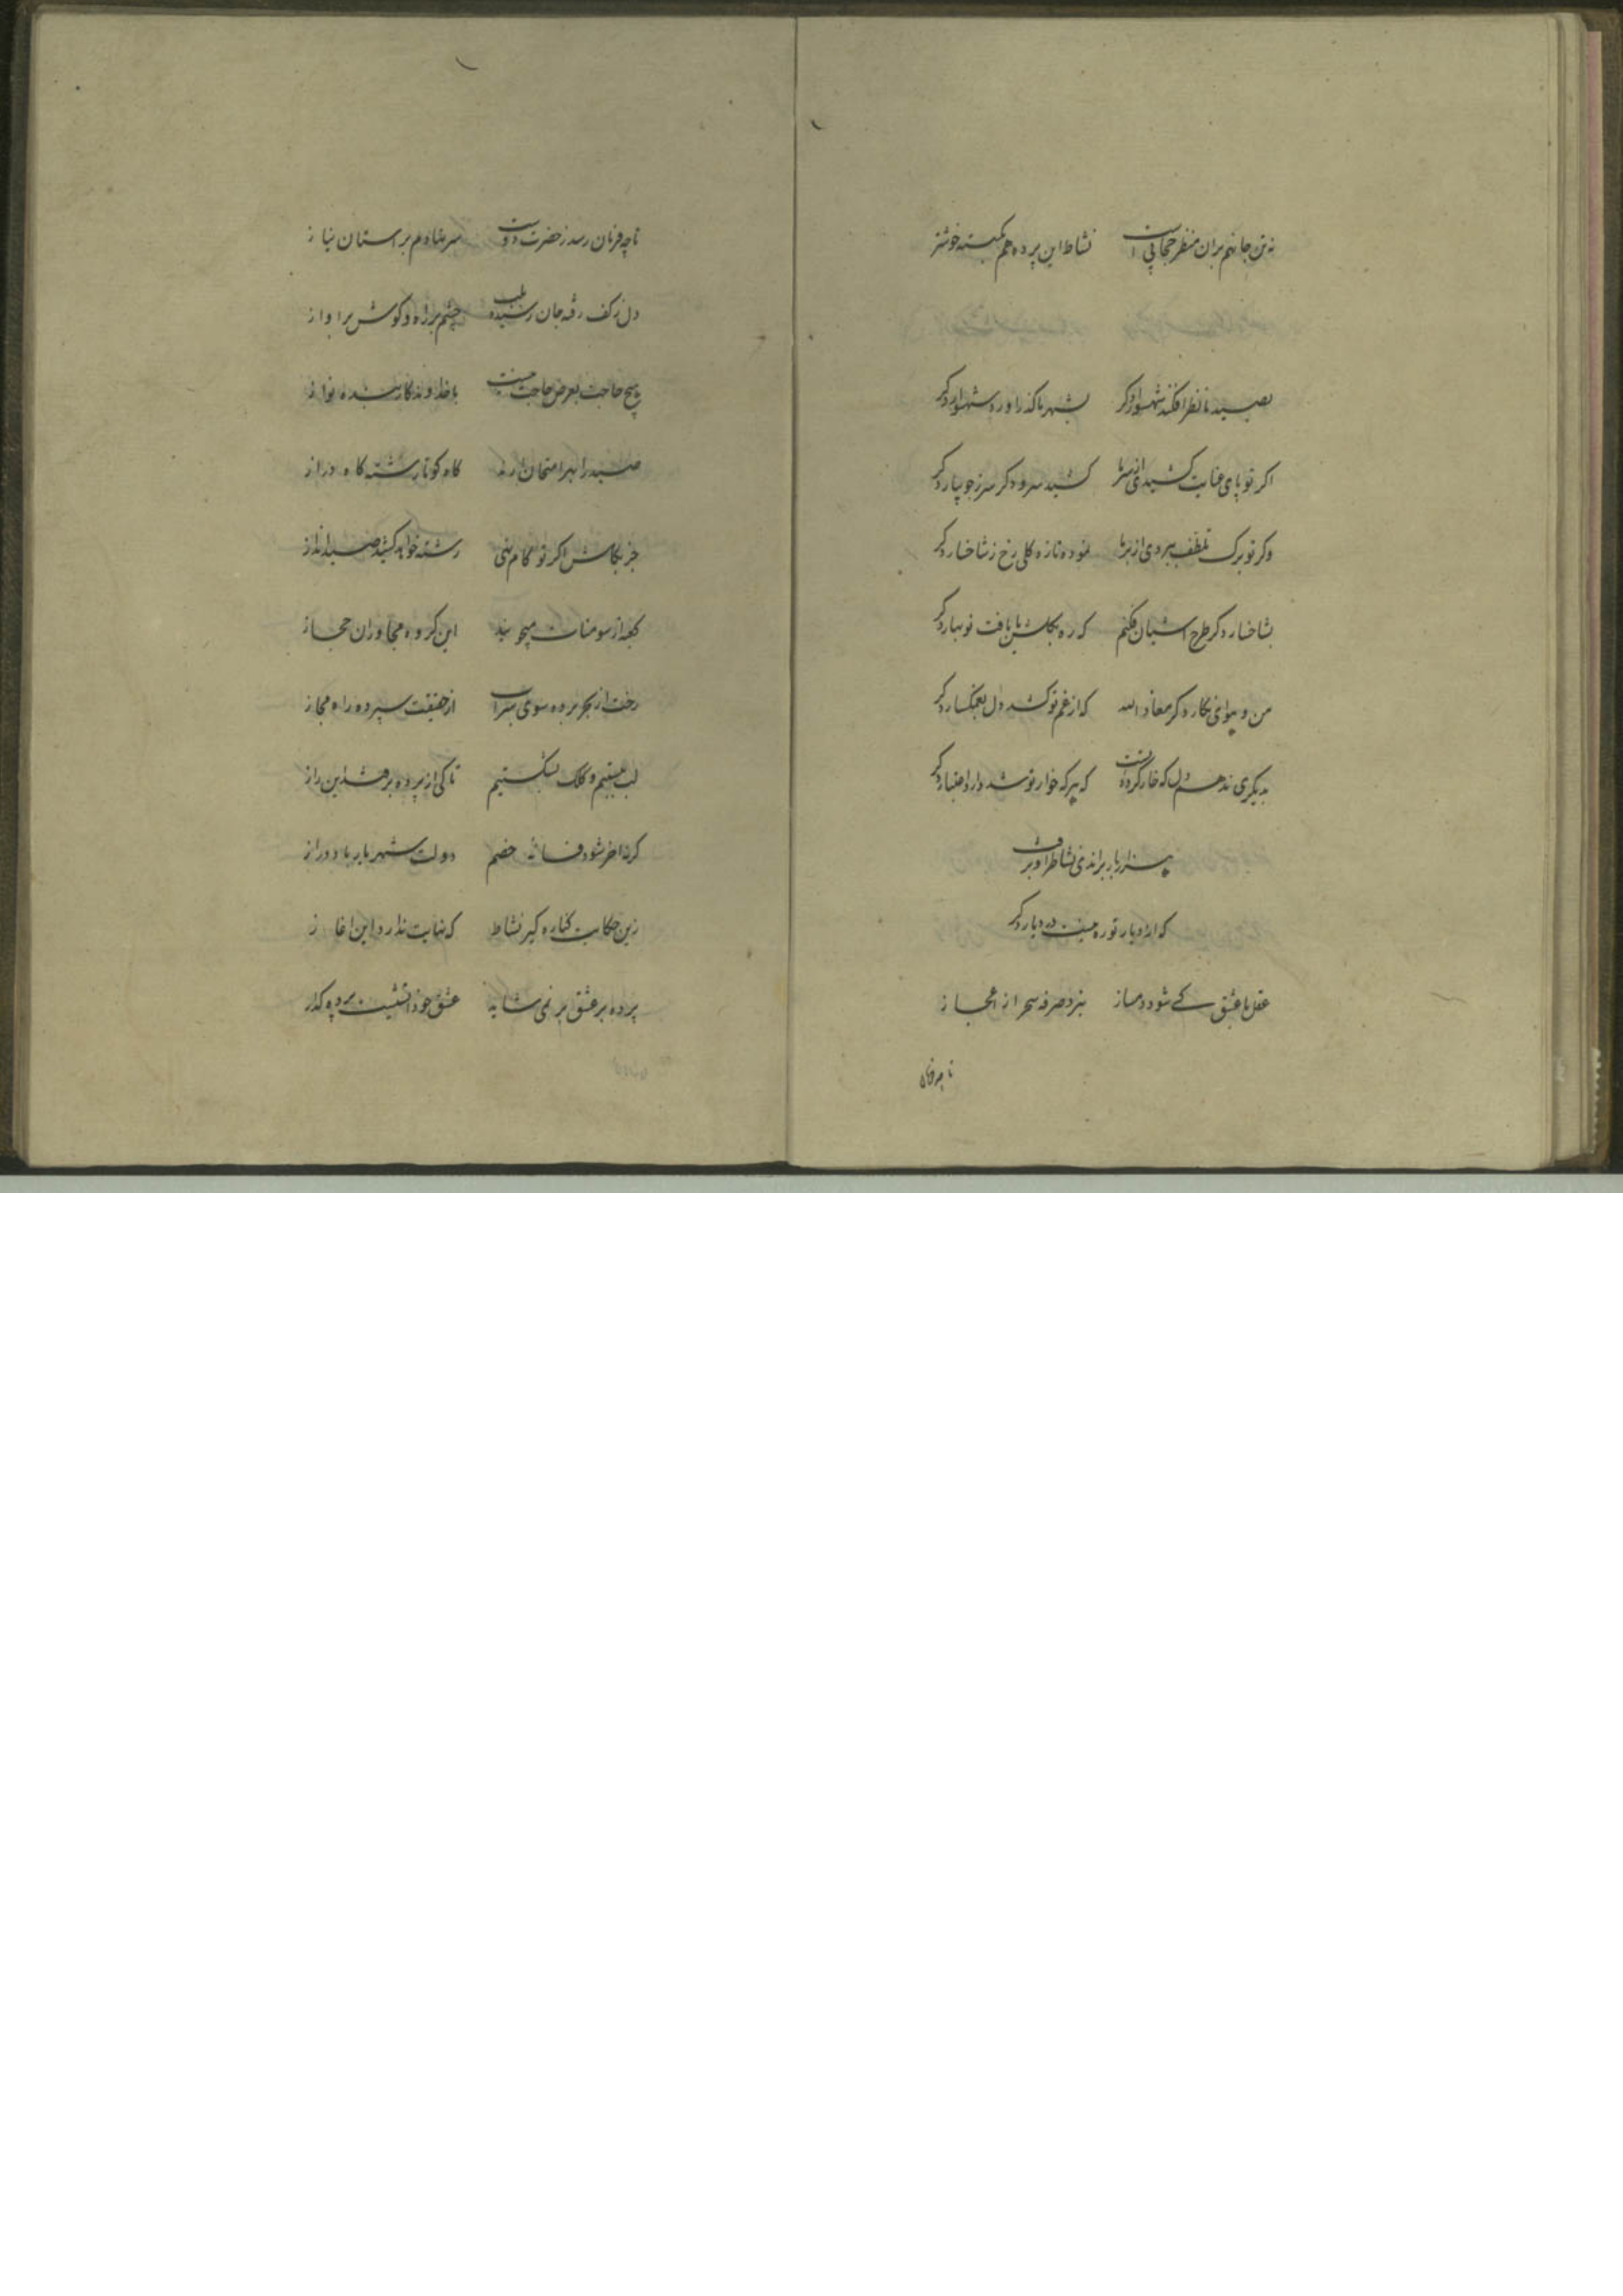 نه تن جانهم بران منظر حجابی است نشاط این پرده هم بکسسته خوشتر
بصید ما نظر افکند شهسوار دکر بشهر ما کذر اورد شهریار دکر
اکر تو پای عنایت کشیدی از سر ما کشید سرو دکر سر ز جویبار دکر
وکر تو برک تلطف ببردی از بر ما نموده تازه کلی رخ ز شاخسار دکر
بشاخسار دکر طرح اشیان فکنم که ره بکلشن ما یافت نوبهار دکر
من و هوای نکار دکر معاذ الله که از غم تو کشد دل بغمکسار دکر
بدیکری ندهم دل که خار کرده تست که هرکه خوار تو شد دارد اعتبار دکر
هزار بار برانی نشاط را و برت
که از دیار تو ره نیست در دیار دکر
عقل با عشق کے شود دمساز نبرد صرفه سحر از اعجاز
تا چه فرمان
تا چه فرمان رسد ز حضرت دوست سر نهادم بر استان نیاز
دل ز کف رفه جان رسیده بلب چشم بر راه و کوش بر اواز
هیچ حاجت بعرض حاجت نیست با خداوندکار بنده نواز
صید را بهر امتحان دارند کاه کوتاه رشته کاه دراز
جز بکامش اکر تو کام نهی رشته خواهد کشید صید انداز
کعبه از سومنات میجویند این کروه مجاوران حجاز
رخت از بحر برده سوی سراب از حقیقت سپرده راه مجاز
لب ببستیم و کلک بشکستیم تا کی از پرده بر فتد این راز
کر نه اخر شود فسانه خصم دولت شهریار باد دراز
زین حکایت کناره کیر نشاط که نهایت ندارد این اغاز
پرده بر عشق بر نمی شاید عشق خود نیست پرده کذار